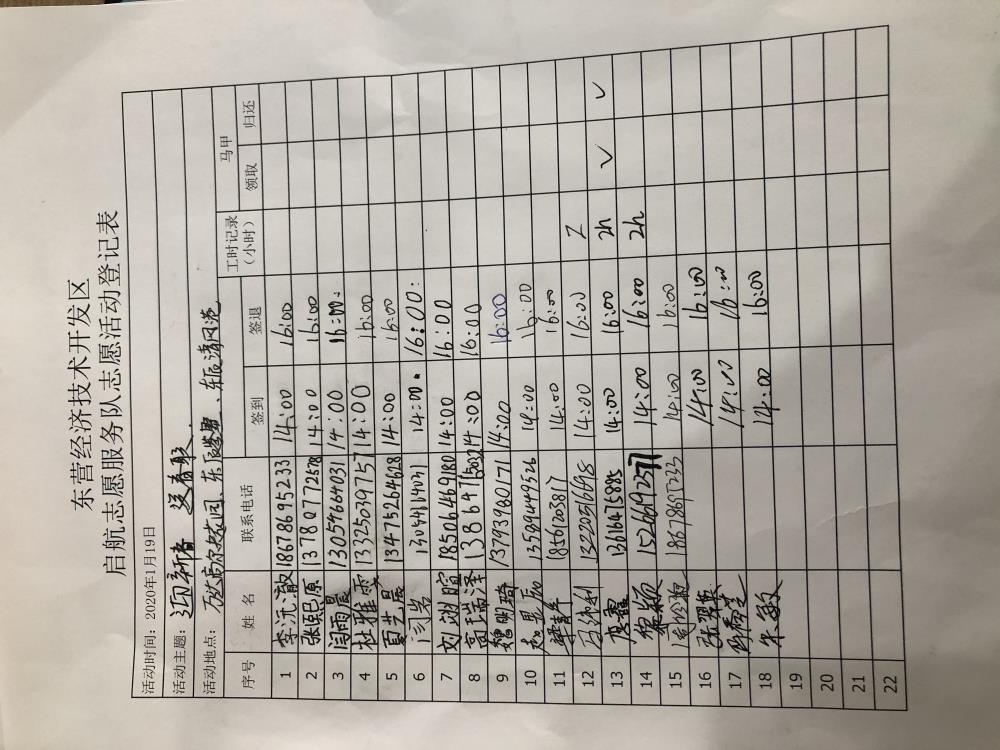 东营经济技术开发区
启航志愿服务队志愿活动登记表
活动时间：2020年1月19日
活动主题：迎新春 送春联.
活动地点： 、东辰清风苑
序号 姓 名 联系电话 签到 签退 工时记录（小时） 马甲
领取 归还
1 李沅澈 18678695233 14:00 16:00
2 张熙原 13780772578 14:00 16:00
3 闫雨晨 13054664031 14:00 16:00
4 杜雅雯 13325039757 14:00 16:00
5 夏艺晨 13475264628 14:00 16:00
6 闫岩 14:00 16:00
7 刘翊暄 18506469180 14:00 16:00
8 高瑞泽 14:00 16:00
9 魏明琦 13793980171 14:00 16:00
10 13589449526 14:00 16:00
11 18562038617 14:00 16:00
12 13220516698 14:00 16:00 2
13 13616475885 14:00 16:00 2h √ √
14 黎颖 15666925771 14:00 16:00 2h
15 18678697233 14:00 16:00
16 14:00 16:00
17 14:00 16:00
18 朱敏 14:00 16:00
19
20
21
22